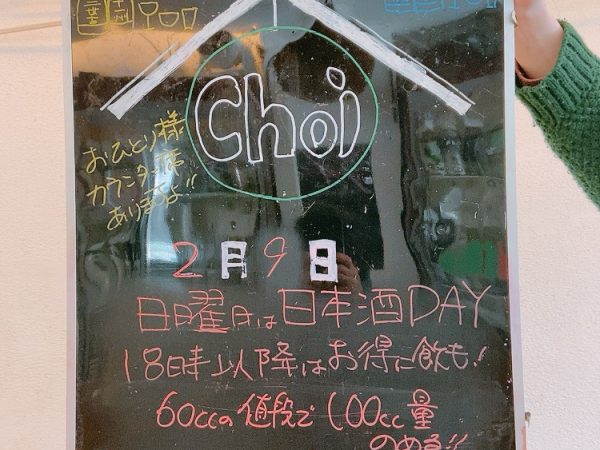 Choi
おひとり様
カウンター席
ありますよ!!
2月9日
日曜日は日本酒DAY
18時以降はお得に飲も!
60ccの値段で100cc量
のめる!!